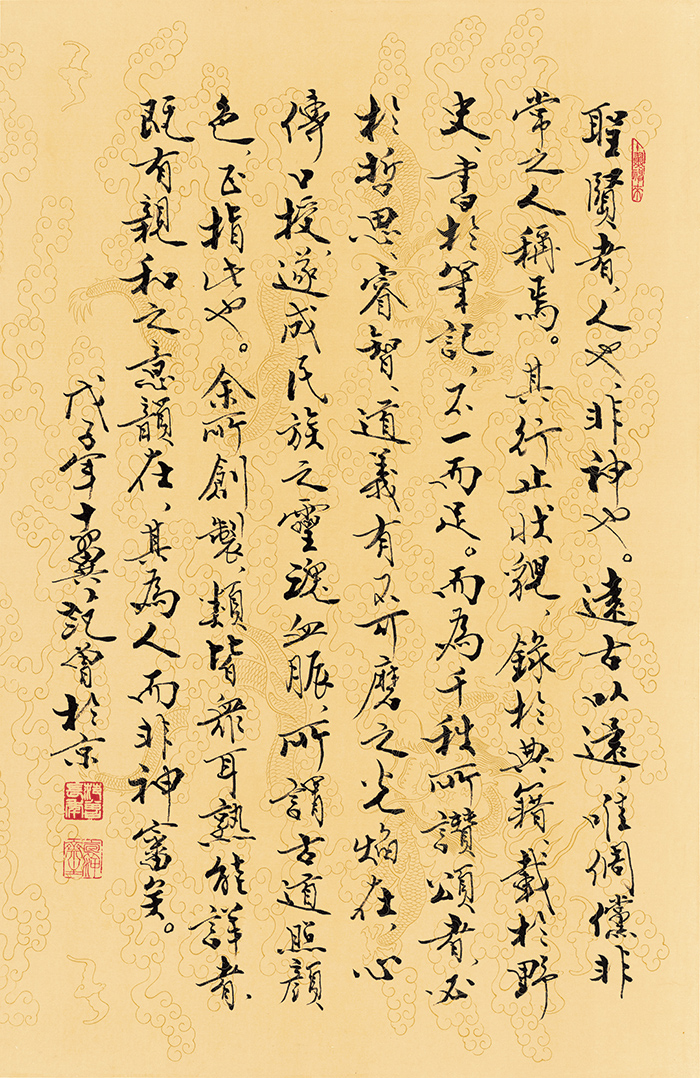 聖賢者、人也、非神也。遠古以還，唯倜儻非
常之人稱焉。其行止狀貌、錄於典籍、載於野
史、書於筆記，不一而足。而為千秋所讚頌者，必
於哲思、睿智、道義有不可磨之光焰在，心
傳口授，遂成民族之靈魂血脈，所謂古道照顏
色，正指此也。余所創製，類皆衆耳熟能詳者，
既有親和之意韻在，其為人而非神審矣。
戊子年十翼范曾於京